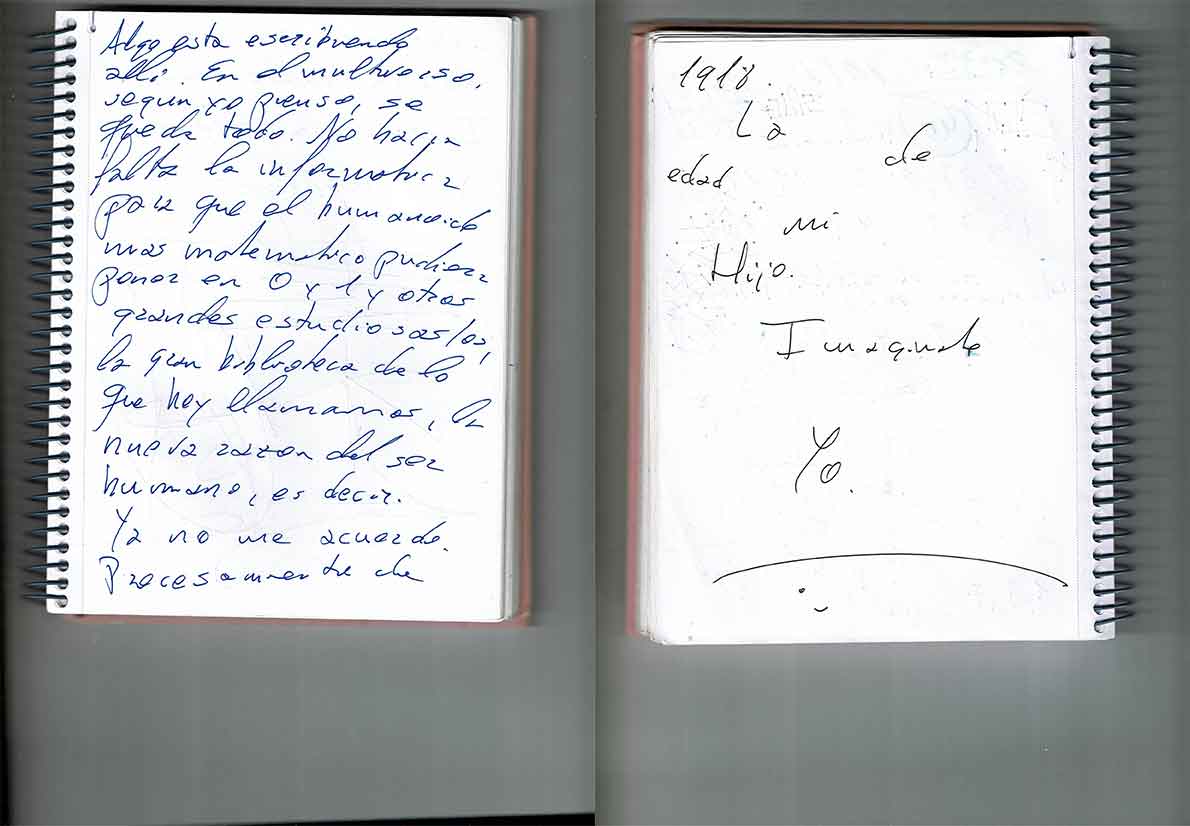 Algo esta escribiendo
alli. En el multiverso,
segun yo pienso, se
queda todo. No hacia
falta la informatica
para que el humanoide
mas matematico pudiera
poner en 0 y 1 y otros
grandes estudiosas/os,
la gran biblioteca de lo
que hoy llamamos, la
nueva razon del ser
humano, es decir.
Ya no me acuerdo.
Procesamiente de
1918.
La
de
edad
mi
Hijo.
Imaginate
Yo.